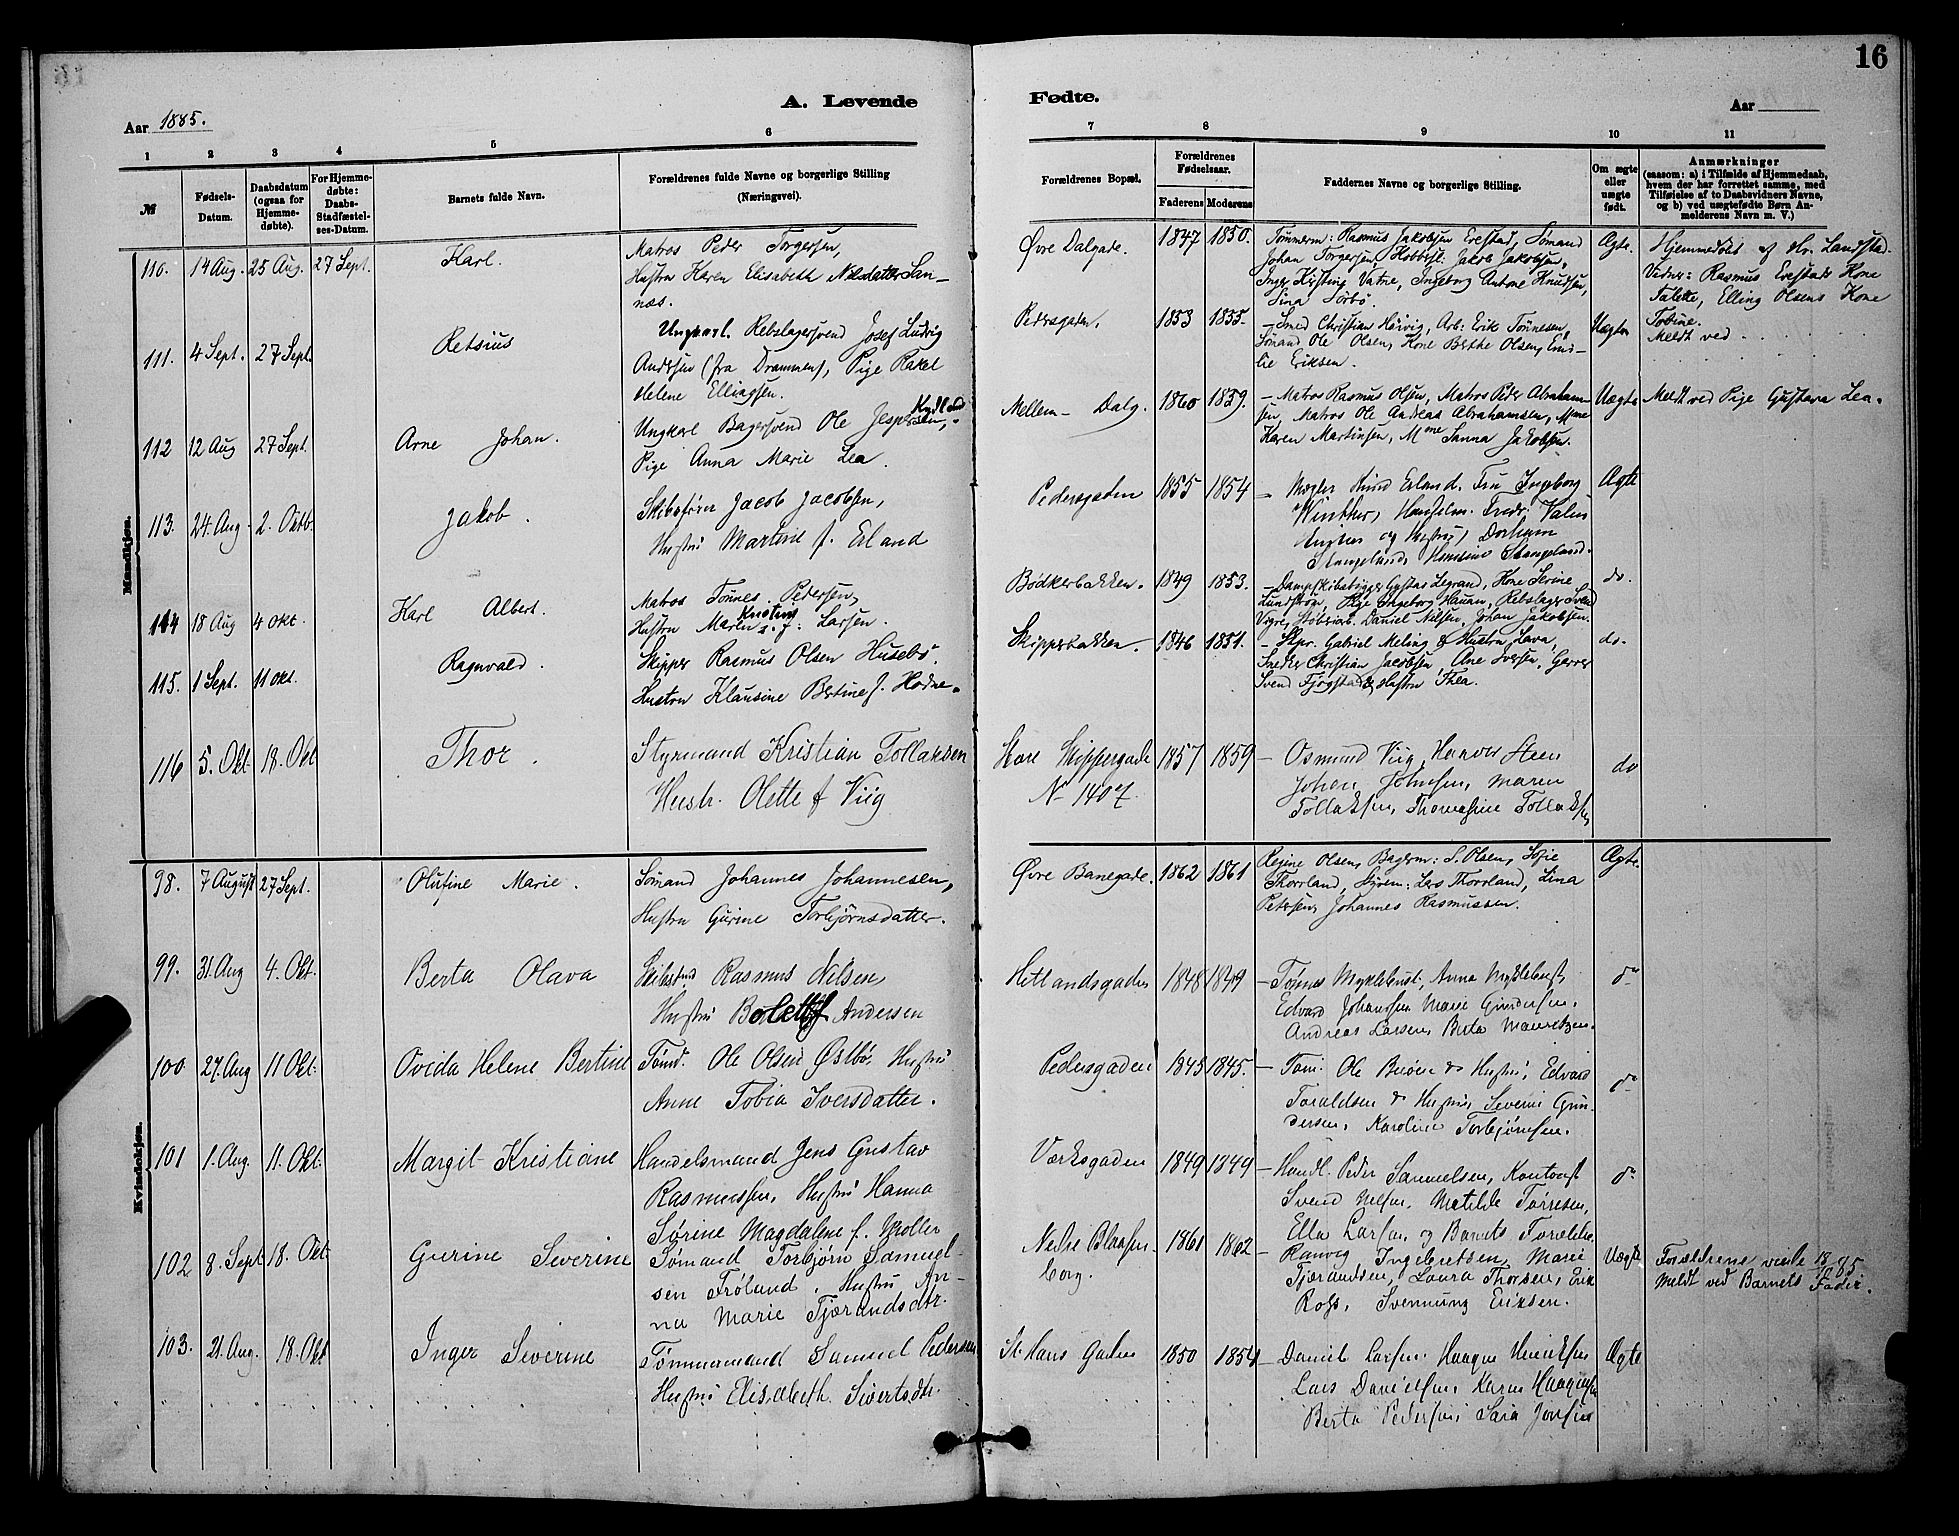 16
A. Levende
Fødte.
Aar 1885.
Aar
1 2 3 4 5 6
7 8 9 10 11
№
Fødsels-
Datum.
Daabsdatum
(ogsaa for
Hjemme-
døbte).
For Hjemme-
døbte:
Daabs-
Stadfæstel-
ses-Datum.
Barnets fulde Navn.
Forældrenes fulde Navne og borgerlige Stilling
(Næringsvei).
Forældrenes Bopæl.
Forældrenes
Fødselsaar.
Faderens Moderens
Faddernes Navne og borgerlige Stilling.
Om ægte
eller
uægte
født.
Anmærkninger
(saasom: a) i Tilfælde af Hjemmedaab,
hvem der har forrettet samme, med
Tilføielse af to Daabsvidners Navne,
og b) ved uægtefødte Børn An-
melderens Navn m. V.)
Mandkjøn.
110. 14 Aug. 25 Aug. 27 Sept. Karl.
Matros Peder Torgersen,
Hustru Karen Elisabeth Nilsdatter San-
næs.
Øvre Dalgade. 1847 1850.
Tømmerm: Rasmus Jakobsen Erestad, Sømand
Johan Torgersen Jakob Jakobsen,
Inger Kirstine Vatne, Ingeborg Antone Knudsen,
Sina Sørbø.
Ægte.
Hjemmedøbt af Hr. Landsta
Vidner: Rasmus Erestads Kone
Talette, Elling Olsens Kone
Tobine.
111. 4 Sept. 27 Sept. Retsius
Ungkarl. Rebslagersvend Josef Ludvig
Andersen (fra Drammen), Pige Rakel
Helene Ellingsen.
Pedersgaden. 1853 1855.
– Smed Christian Hervig, Arb: Erik Tønnesen,
Sømand Ole Olsen, Kone Berthe Olsen, Emi-
lie Eriksen.
Uægte
Meldt ved
112 12 Aug 27 Sept. Arne Johan.
Ungkarl Bagersvend Ole Jespersen,
Pige Anna Marie Lea.
Mellem- Dalg. 1860 1859.
– Matros Rasmus Olsen, Matros Peder Abraham-
sen, Matros Ole Andreas Abrahamsen, Mme
Karen Martinsen, Mme Sanna Jakobsen.
Uægte
Meldt ved Pige Gustava Lea.
113. 24. Aug. 2. Oktb. Jakob.
Skibsfører Jacob Jacobsen,
Hustru Martine f. Erland
Pedersgaden 1855 1854
– Mægler Knud Erland. Fru Ingeborg
Winther, Fredr. Valen
og Hustru,
Stangeland, Stangeland.
Ægte
114 18 Aug 4 Okt. Karl Albert.
Matros Tønnes Petersen,
Hustru Maren Kirstine f: Larsen.
Bødkerbakken. 1849 1853.
– Gustav Legrand, Kone Serine
Lundstrøm, Pige Ingeborg Hauan, Rebslager Svend
Vigre, Daniel Nilsen, Johan Jakobsen.
do.
115. 1 Sept. 11 Okt. Ragnvald.
Skipper Rasmus Olsen Husebø.
Hustru Klausine Bertine f. Hodne.
Skipperbakken. 1846 1851.
– Skpr. Gabriel Meling & Hustru Lava,
Snedker Christian Jacobsen, Ane Iversen, Garver
Svend Fjogstad & Hustru Thea.
do.
116 5. Okt. 18. Okt Thor.
Styrmand Kristian Tollaksen
Hustr. Olette f Viig
Store Skippergade
N– 1407. 1857 1859
– Osmund Viig, Steen
Johan Johnsen, Maren
Tollaksen, Thomasine Tollaksen
do
Kvindekjøn.
98. 7 August 27 Sept. Olufine Marie.
Sømand Johannes Johannesen,
Hustru Gurine Torbjørnsdatter.
Øvre Banegade. 1862 1861
Regine Olsen, Bagerm: S. Olsen, Sofie
Thorrland, Styrm: Lars Thorrland, Lina
Petersen, Johannes Rasmussen.
Ægte.
99. 31. Aug 4. Okt. Berta Olava
Rasmus Nilsen
Hustru Bolette f Andersen
Hetlandsgaden 1848 1849
– Tønnes Myklebust, Anna Myklebust,
Edvard Johansen Marie Gundersen.
Andreas Larsen, Berta Mauritzen.
do
100 27 Aug 11 Okt. Ovida Helene Bertine
Tønd. Ole Olsen Østbø, Hustru
Anne Tobia Iversdatter.
Pedersgaden 1843 1845.
– Tøm. Ole & Hustru, Edvard
Toraldsen & Hustru, Severin Gun-
dersen, Karoline Torbjørnsen.
do
101 1. Aug. 11. Okt. Margit Kristiane
Handelsmand Jens Gustav
Rasmussen, Hustru Hanna
Sørine Magdalene f. Møller
Værksgaden 1849 1849
– Handl. Peder Samuelsen, Kontorist
Svend Nilsen, Matilde Tørresen,
Ella Larsen og Barnets Forældre.
do
102 8. Sept 18. Okt Gurine Severine
Sømand Torbjørn Samuel-
sen Frøland, Hustru An-
na Marie Tjærandsdtr.
Nedre Blaasen-
borg. 1861 1862
– Ranvig Ingebretsen, Marie
Tjærandsen, Laura Thorsen, Erik
Ross, Svennung Eriksen.
Uægte
Forældrene viede 1885
Meldt ved Barnets Fader.
103. 21. Aug. 18. Okt Inger Severine
Tømmermand Samuel Pedersen
Hustru Elisabeth Sivertsdtr.
St. Hans Gaden 1850 1854
– Daniel Larsen, Haagen Henriksen
Lars Danielsen, Karen Haagensen
Berta Pedersen, Sara Jonsen
Ægte